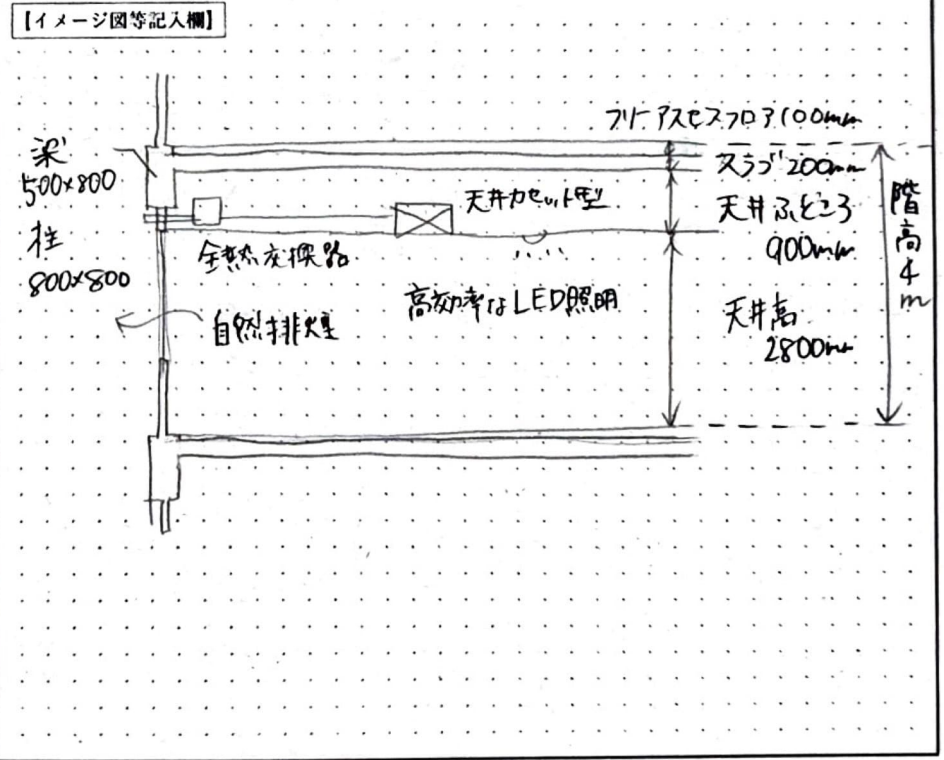 【イメージ図等記入欄】
フリーアクセスフロア100mm
梁
500×800
柱
800×800
スラブ200mm
天井カセット型
天井ふところ
900mm
階高4m
全熱交換路
高効率なLED照明
自然排煙
天井高
2800mm